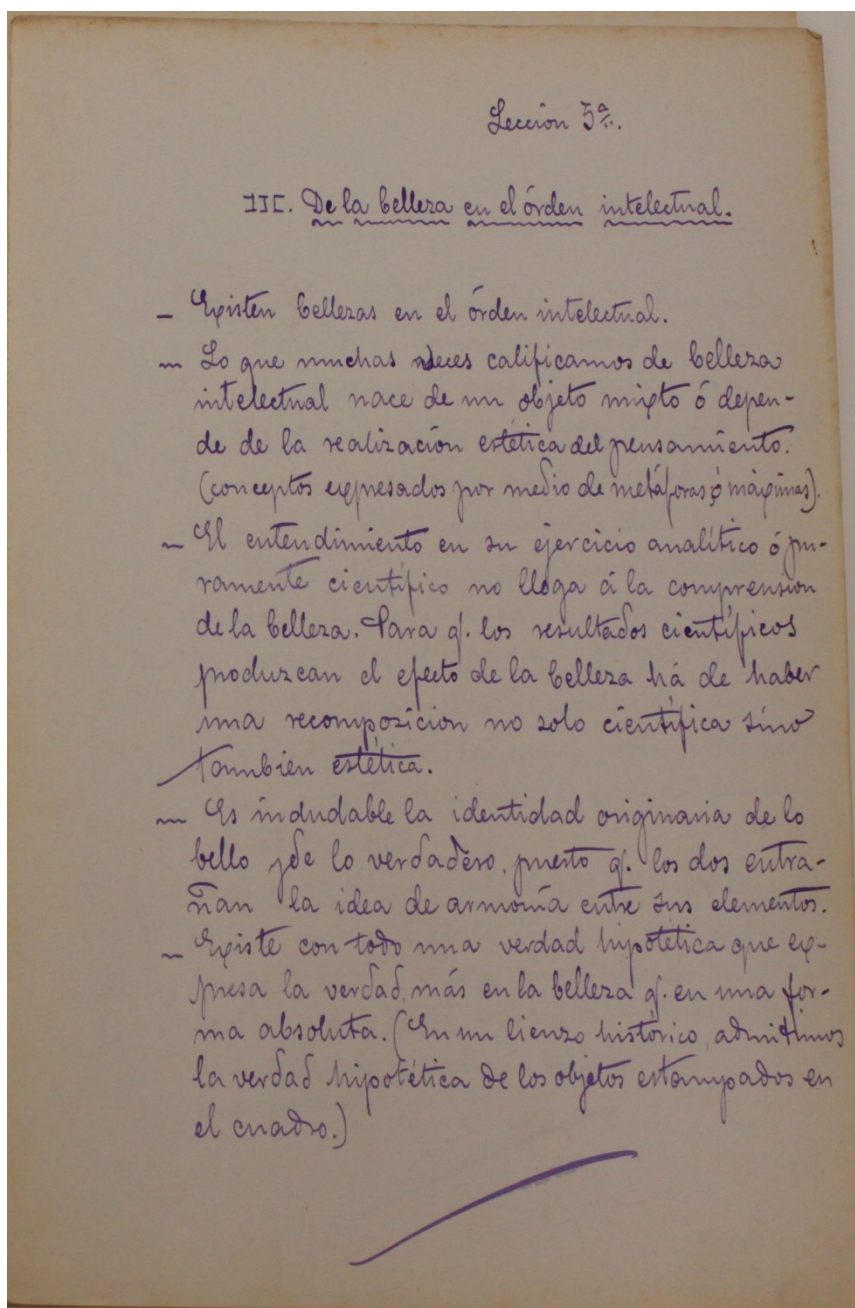 Lección 5ª.
III. De la belleza en el órden intelectual.
– Existen bellezas en el órden intelectual.
– Lo que muchas veces calificamos de belleza
intelectual nace de un objeto mixto ó depen-
de de la realización estética del pensamiento.
(conceptos expresados por medio de metáforas ó máximas).
– El entendimiento en su ejercicio analítico ó pu-
ramente científico no llega á la comprension
de la belleza. Para q. los resultados científicos
produzcan el efecto de la belleza há de haber
una recomposicion no solo científica sino
tambien estética.
– Es indudable la identidad originaria de lo
bello y de lo verdadero, puesto q. los dos entra-
ñan la idea de armonía entre sus elementos.
– Existe con todo una verdad hipotética que ex-
presa la verdad, más en la belleza q. en una for-
ma absoluta. (En un lienzo histórico, admitimos
la verdad hipotética de los objetos estampados en
el cuadro.)